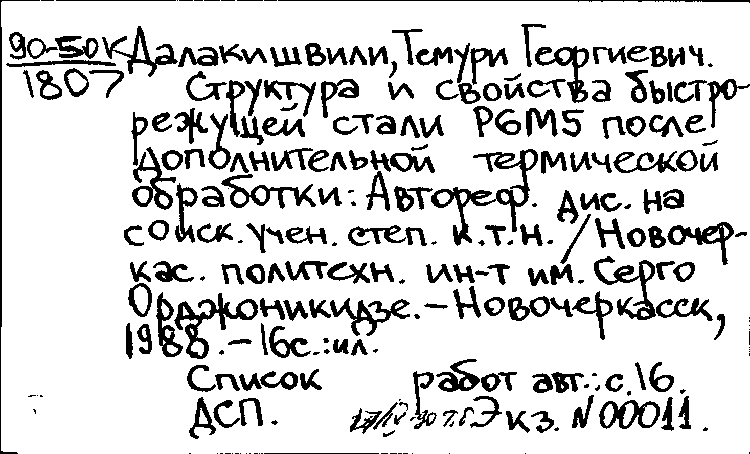 90-50К Далакишвили, Темури Георгиевич.
1807 Структура и свойства быстро-
режущей стали Р6М5 после
дополнительной термической
обработки: Автореф. дис. на
соиск. учен. степ. к.т.н. / Новочер-
кас. политехн. ин-т им. Серго
Орджоникидзе. – Новочеркасск,
1988. – 16с.: ил.
Список работ авт.: с. 16.
ДСП. Экз. N 00011.